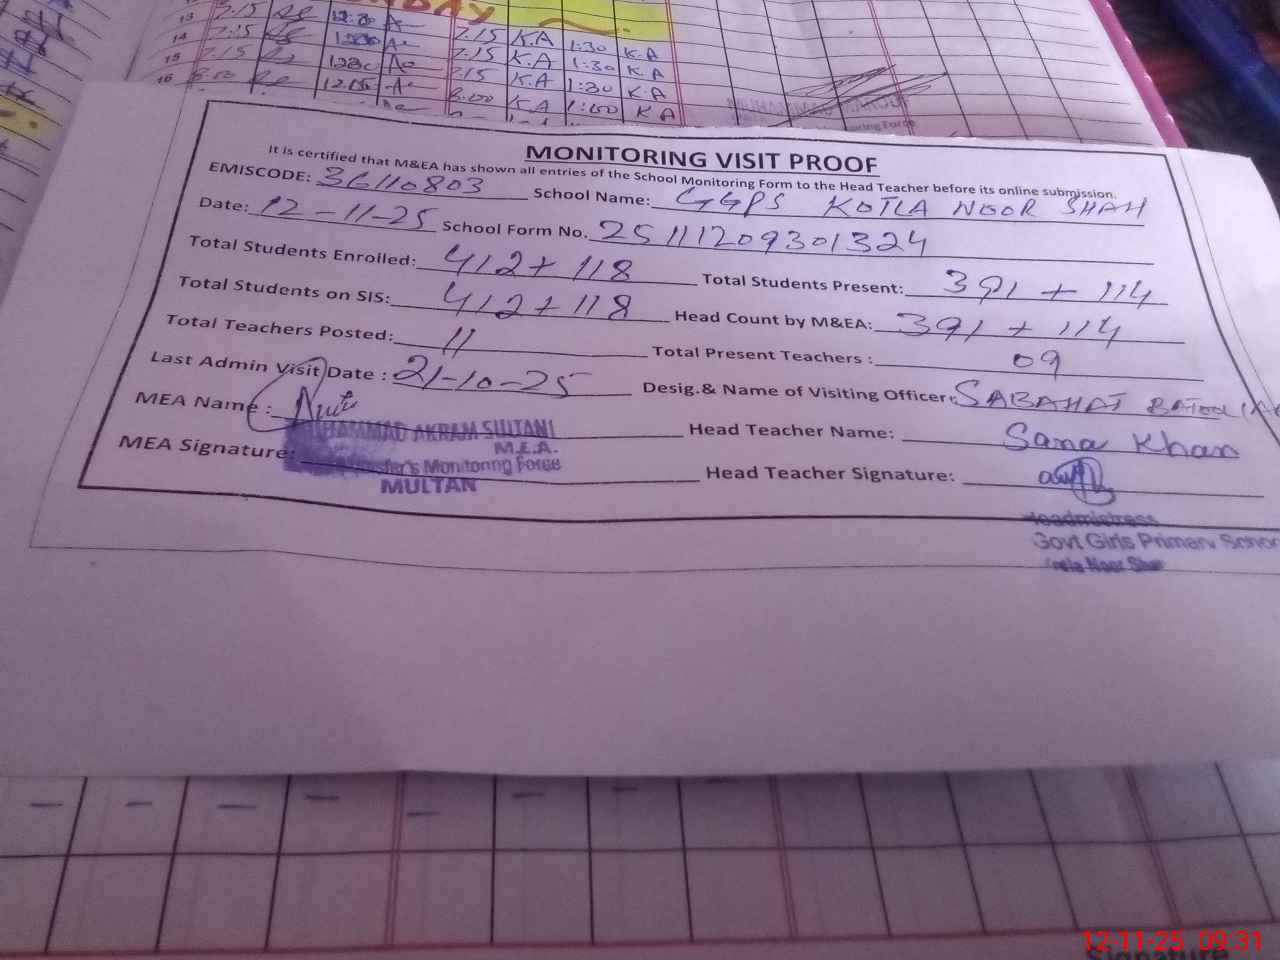 13 7.15 12:30 7.15 K.A 1:30 K.A
14 7:15 1230 7.15 K.A 1:30 K.A
15 7.15 1230 7.15 K.A 1:30 K.A
16 8.00 12.00 8:00 K.A 1:00 K.A
MONITORING VISIT PROOF
It is certified that M&EA has shown all entries of the School Monitoring Form to the Head Teacher before its online submission.
EMISCODE: 36110803 School Name: GGPS KOTLA NOOR SHAH
Date: 12-11-25 School Form No. 25111209301324
Total Students Enrolled: 412+118 Total Students Present: 391+114
Total Students on SIS: 412+118 Head Count by M&EA: 391+114
Total Teachers Posted: 11 Total Present Teachers : 09
Last Admin Visit Date : 21-10-25 Desig.& Name of Visiting Officer: SABAHAT BATOOL
MEA Name : Head Teacher Name: Sana Khan
MUHAMMAD AKRAM SULTANI
M.E.A.
MEA Signature: Head Teacher Signature:
Monitoring Force
MULTAN
Headmistress
Govt Girls Primary School
Kotla Noor Shah
12-11-25 09:31
Signature